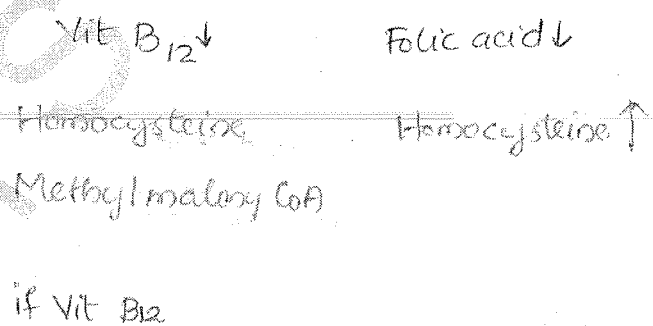 Vit B12↓ Folic acid↓
Homocysteine Homocysteine ↑
Methylmalony CoA
if Vit B12